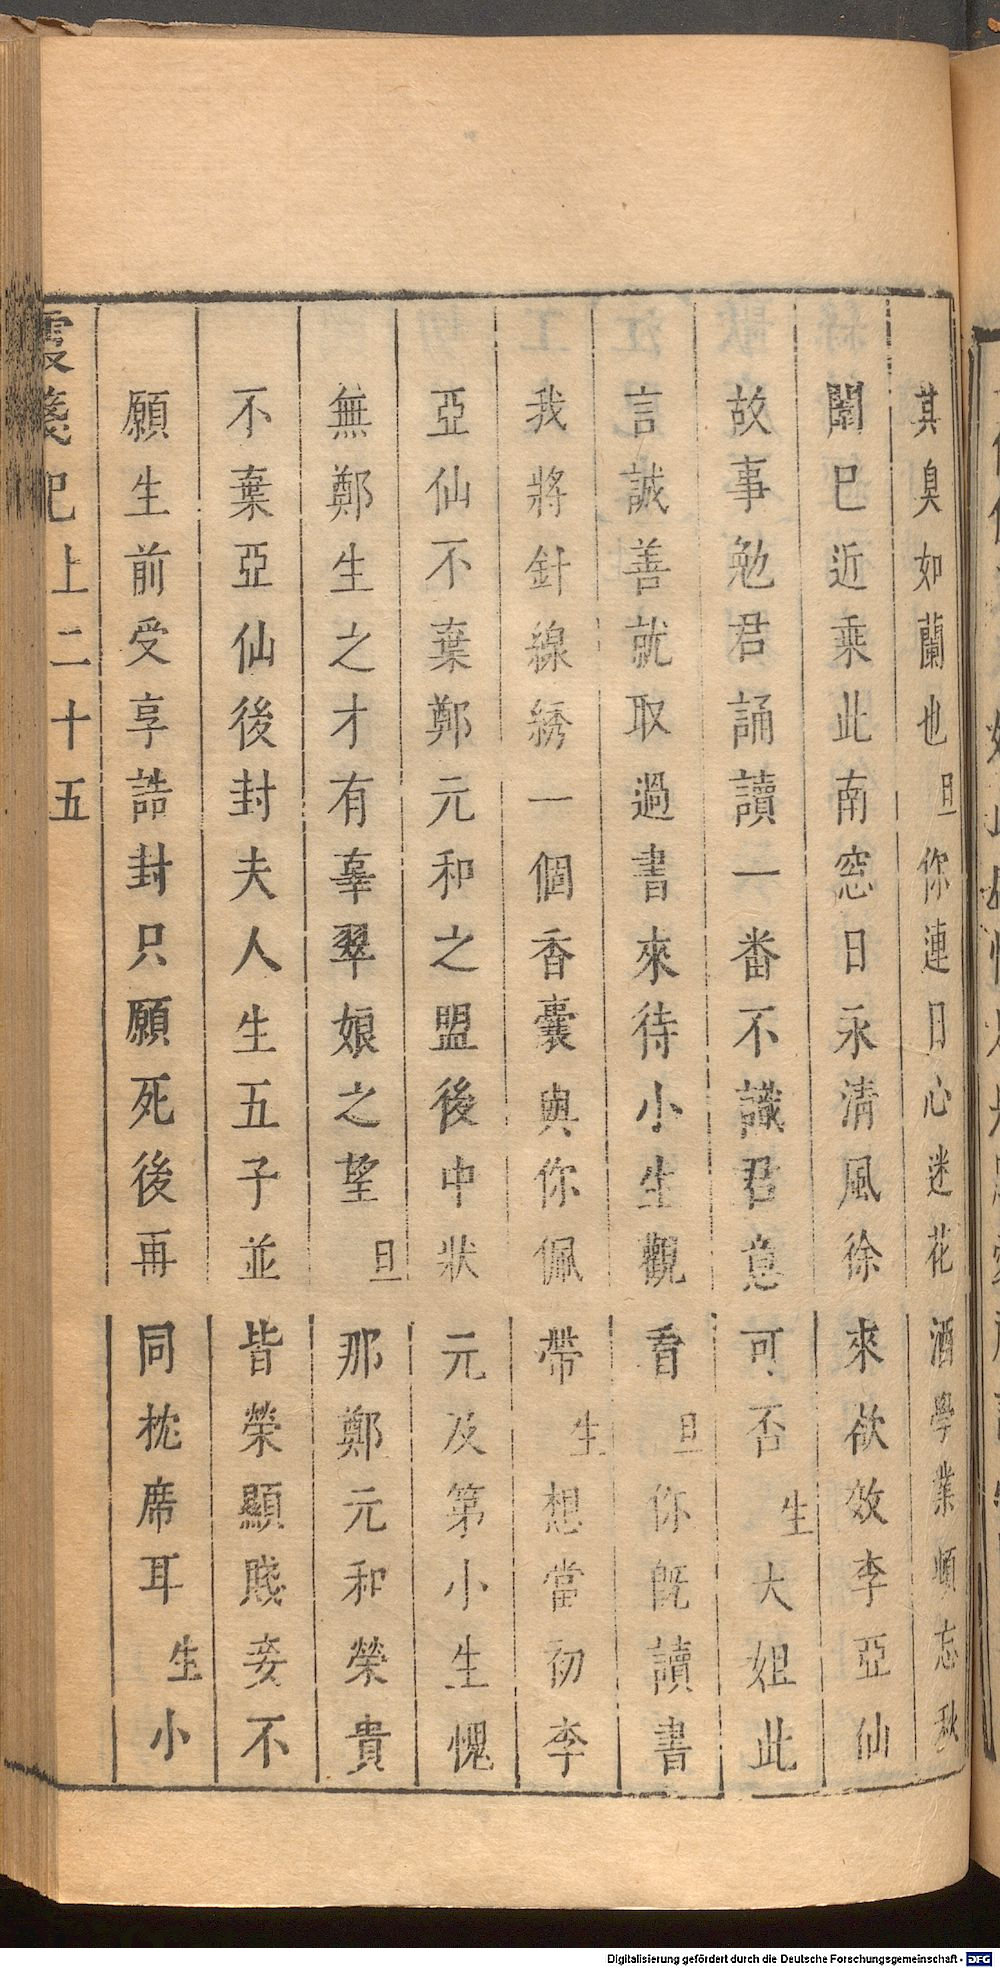 其臭如蘭也旦你連日心迷花酒學業頓忘秋
闈巳近乘此南窓日永清風徐來欲效李亞仙
故事勉君誦讀一畨不識君意可否生大姐此
言誠善就取過書來待小生觀看旦你旣讀書
我將針線綉一個香囊與你佩帶生想當初李
亞仙不棄鄭元和之盟後中狀元及第小生愧
無鄭生之才有辜翠娘之望旦那鄭元和榮貴
不棄亞仙後封夫人生五子並皆榮顯賤妾不
願生前受享誥封只願死後再同枕席耳生小
霞箋記上二十五
Digitalisierung gefördert durch die Deutsche Forschungsgemeinschaft - DFG